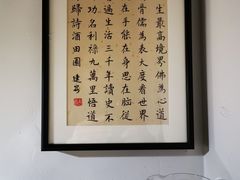 生最高境界佛為心道
骨儒為表大度看世界
在手能在身思在腦從
過生活三千年讀史不
功名利祿九萬里悟道
歸詩酒田園 建